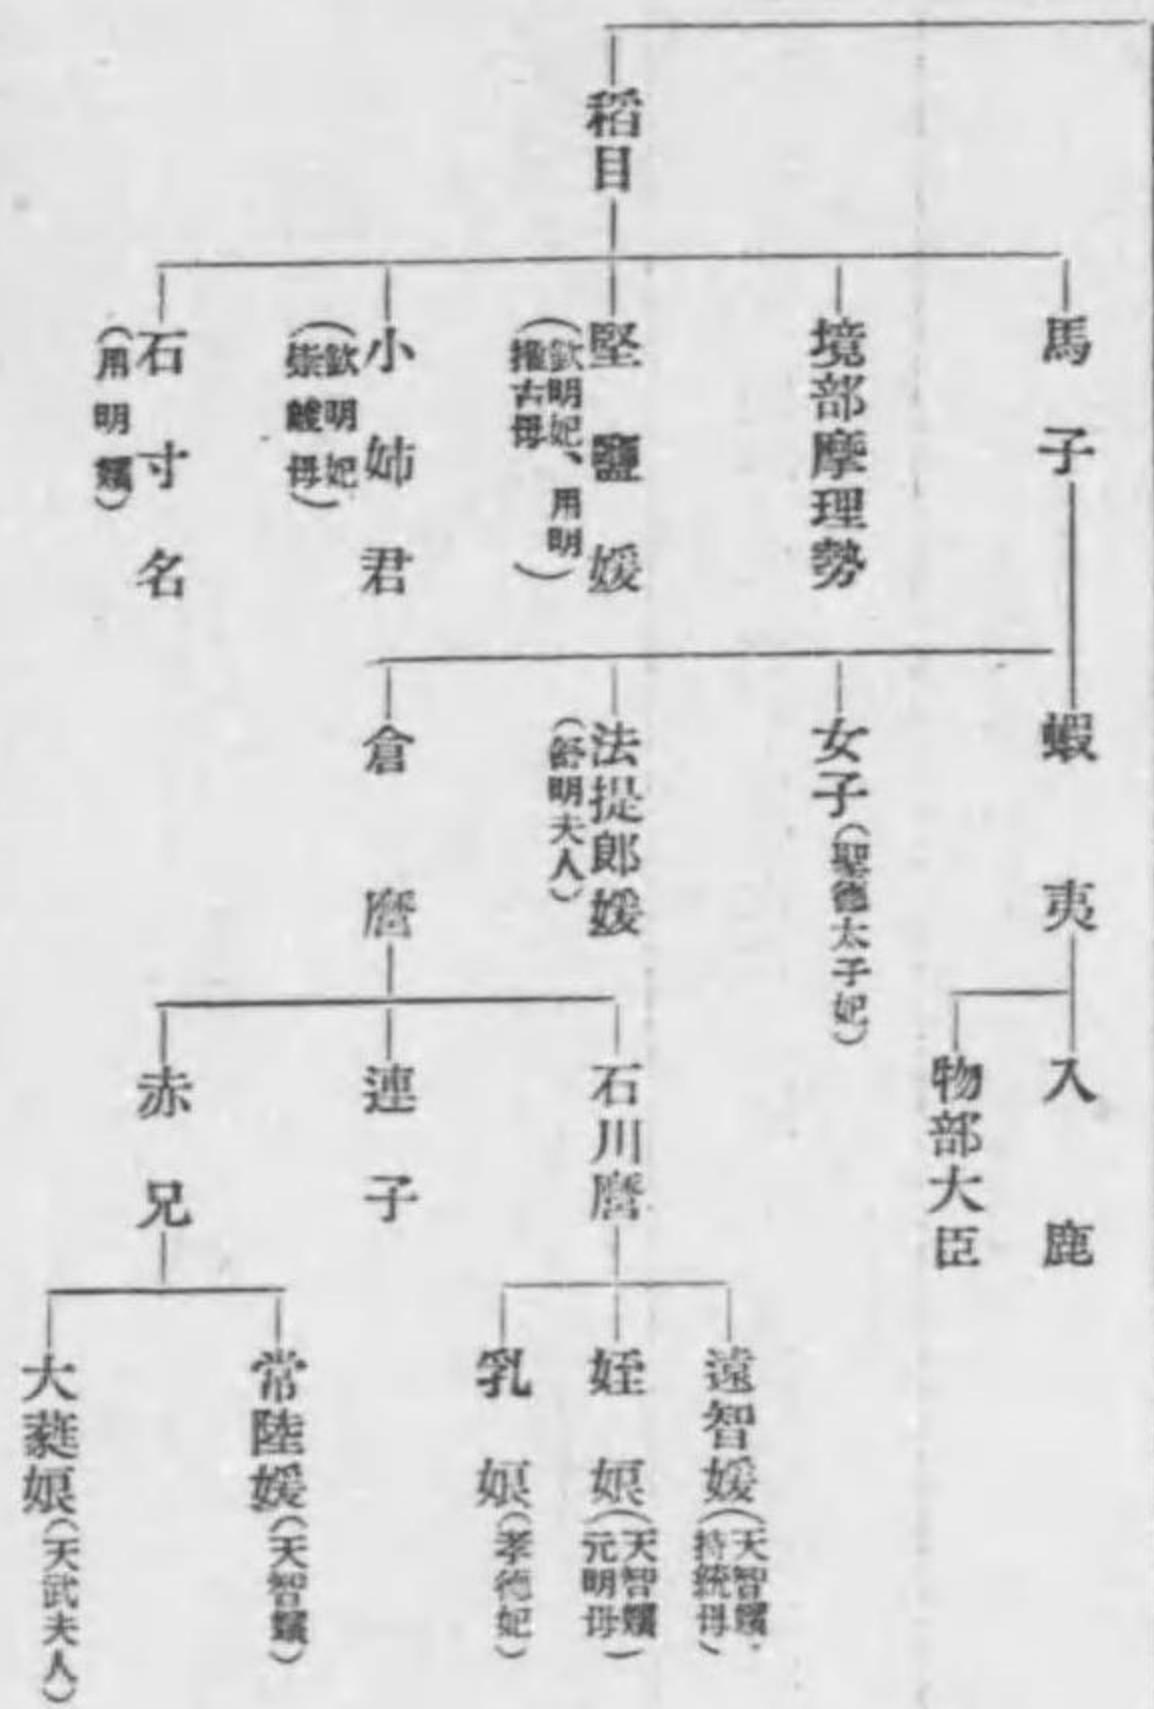 稻目
馬子
境部摩理勢
堅鹽媛
(欽明妃、用明
推古母)
小姉君
(欽明妃
崇峻母)
石寸名
(用明嬪)
蝦夷
女子(聖德太子妃)
法提郎媛
(舒明夫人)
倉麿
入鹿
物部大臣
石川麿
連子
赤兄
遠智媛(天智嬪、
持統母)
姪娘(天智嬪
元明母)
乳娘(孝德妃)
常陸媛(天智嬪)
大蕤娘(天武夫人)